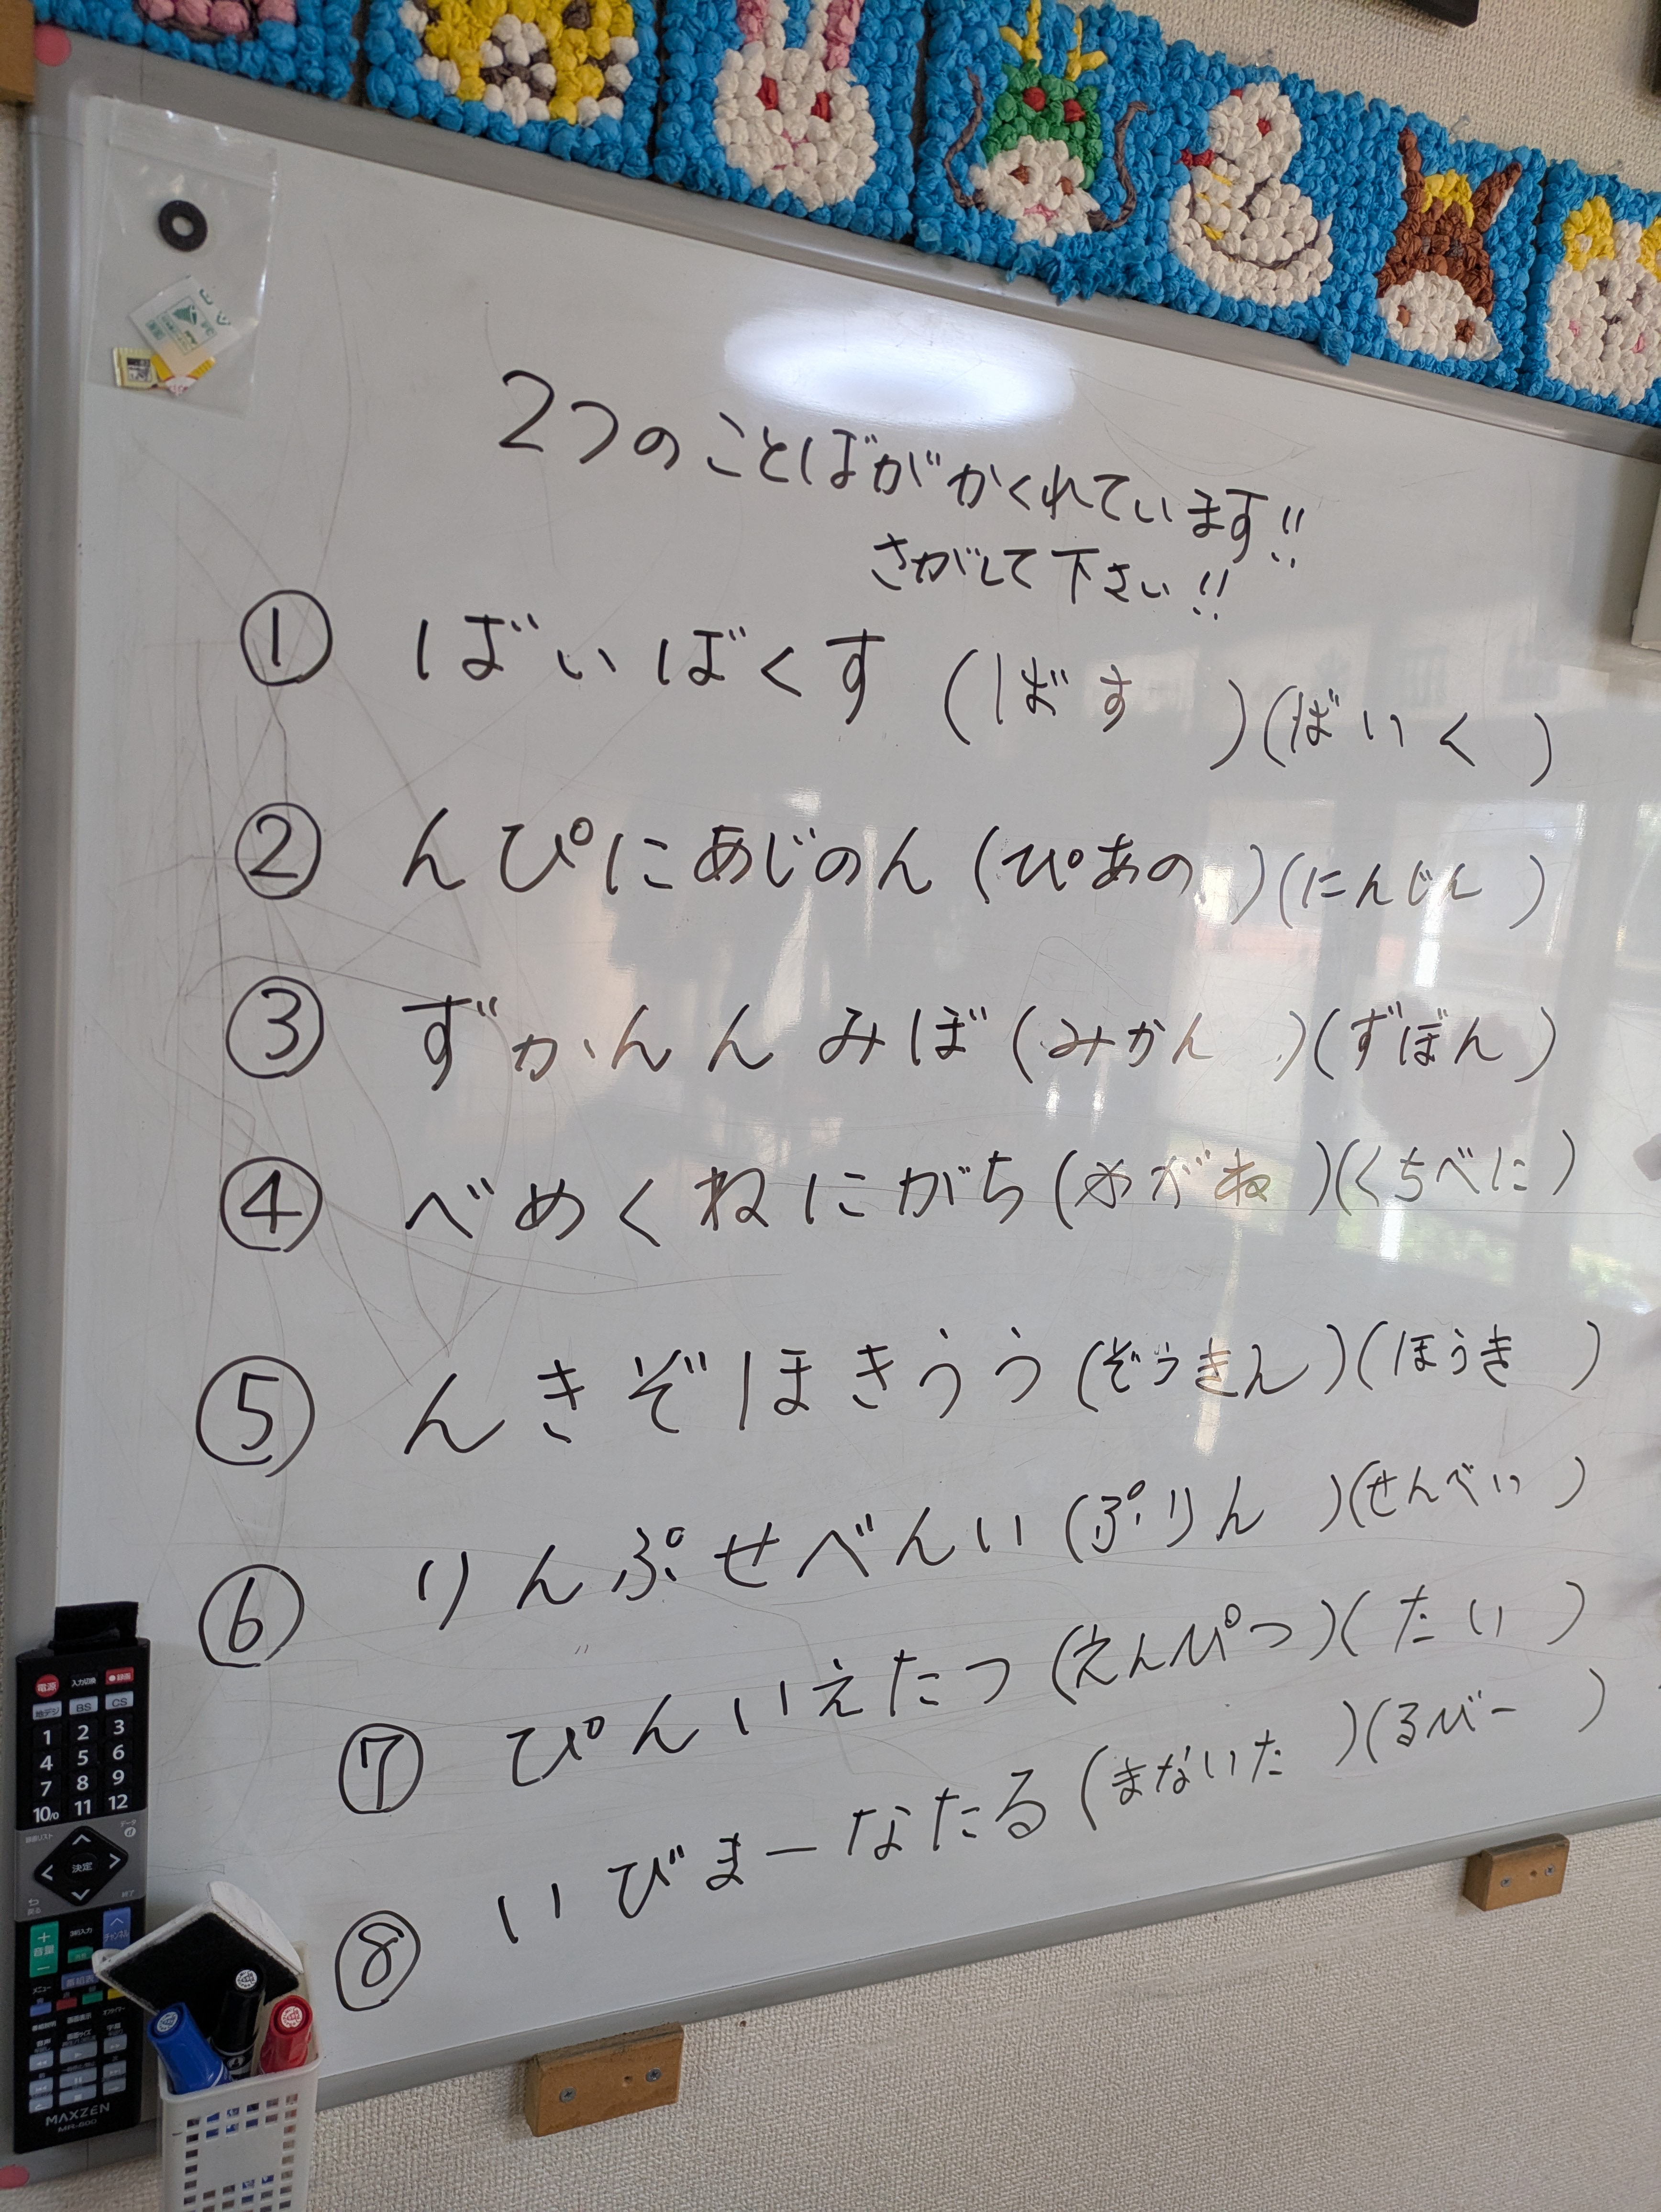 2つのことばがかくれています!!
さがして下さい!!
① ばいばくす (ばす)(ばいく)
② んぴにあじのん (ぴあの)(にんじん)
③ ずかんんみぼ (みかん)(ずぼん)
④ べめくねにがち (めがね)(くちべに)
⑤ んきぞほきうう (ぞうきん)(ほうき)
⑥ りんぷせべんい (ぷりん)(せんべい)
⑦ ぴんいえたつ (えんぴつ)(たい)
⑧ いびまーなたる (まないた)(るびー)
電源 入力切換 ●録画
地デジ BS CS
1 2 3
4 5 6
7 8 9
10/0 11 12
決定
戻る
音量 チャンネル
メニュー
MAXZEN